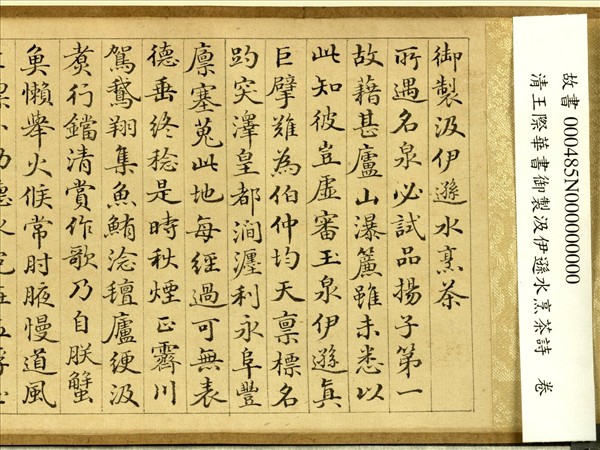 故書 000485N000000000
清王際華書御製汲伊遜水烹茶詩 卷
御製汲伊遜水烹茶
所遇名泉必試品揚子第一
故藉甚廬山瀑簾雖未悉以
此知彼豈虛審玉泉伊遜真
巨擘難為伯仲均天稟標名
趵突澤皇都澗瀍利永阜豐
廩塞菟此地每經過可無表
德垂終稔是時秋煙正霽川
駕鵝翔集魚鮪淰氊廬綆汲
煑行鐺清賞作歌乃自朕蟹
懶舉火候常肘腋慢道風
功德水